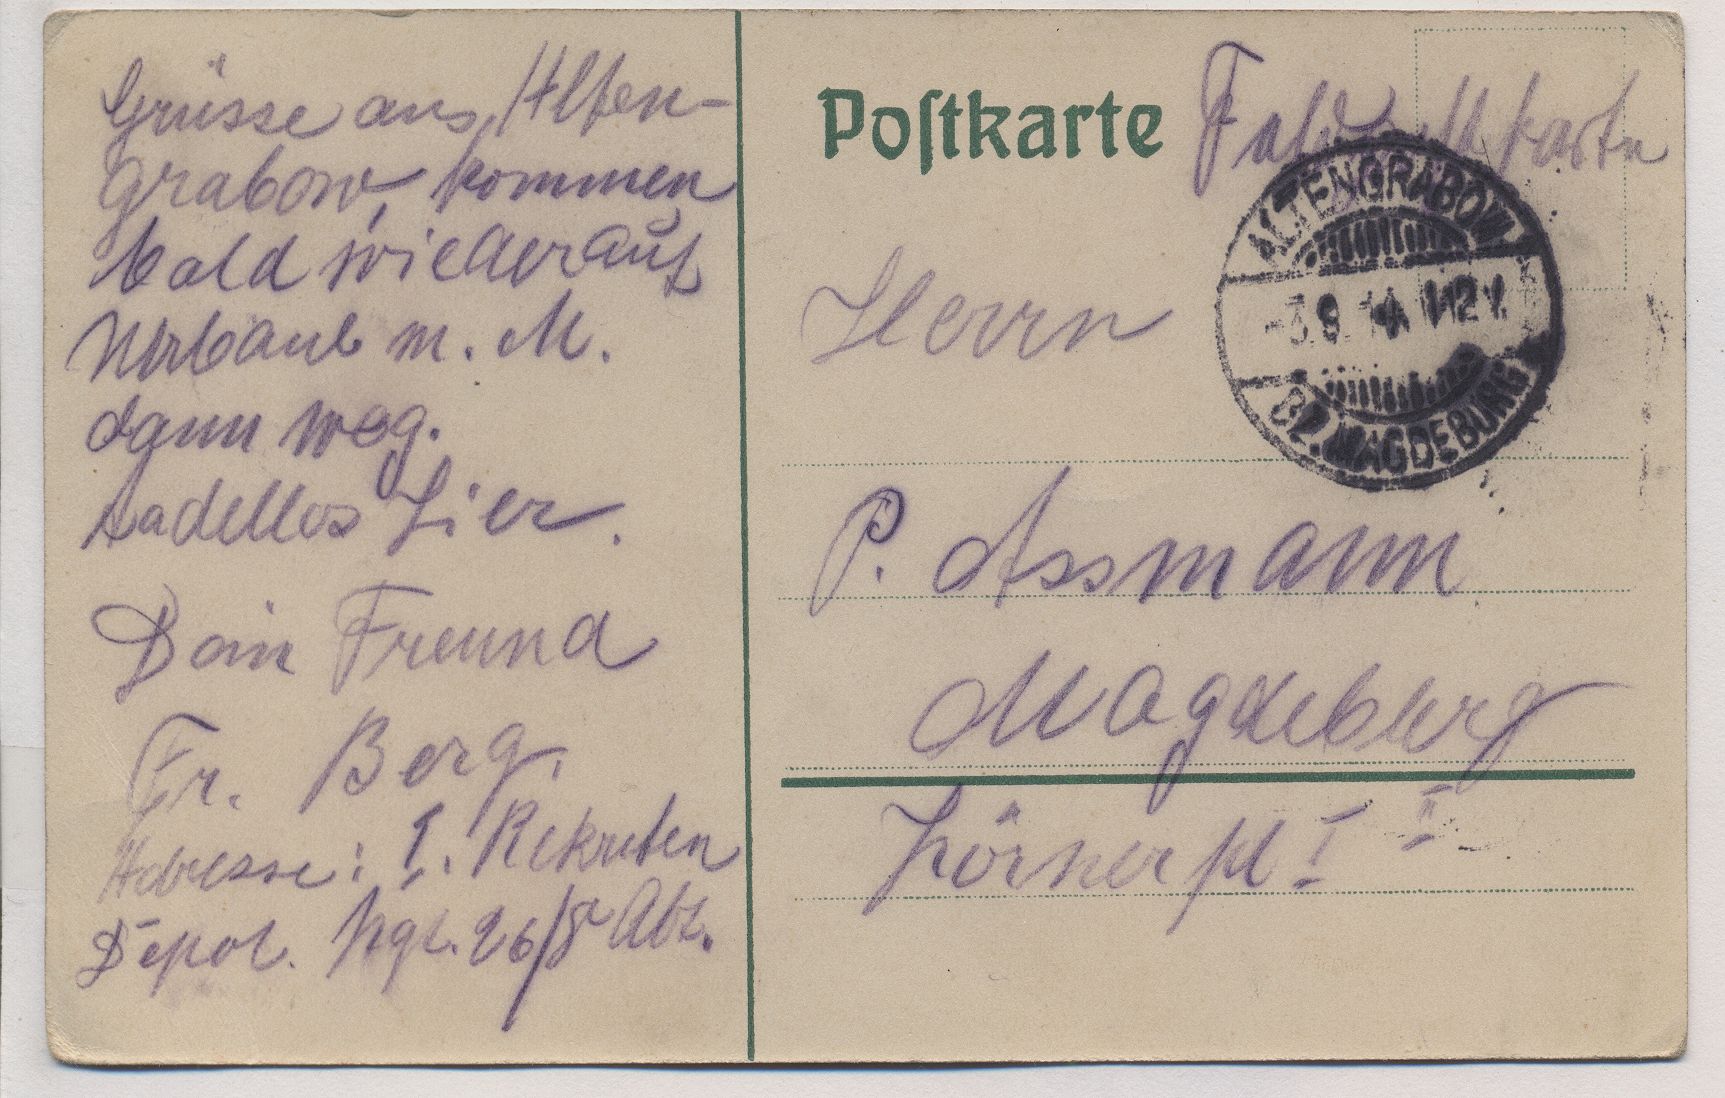 Grüsse aus Alten-
grabow, kommen
bald wieder auf
Urlaub m. M.
dann weg.
tadellos hier.
Dein Freund
Fr. Berg.
Adresse: I. Rekruten
Depot. 26/8 Abt.
Postkarte
Feldpostkarte
ALTENGRABOW
-3.9.14 11-12V.
BZ. MAGDEBURG
Herrn
P. Assmann
Magdeburg
Körnerpl I II